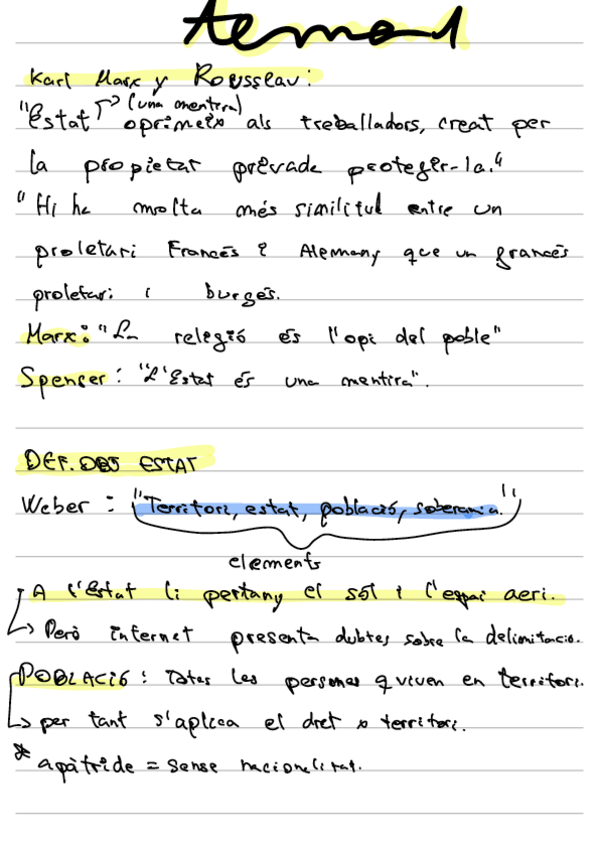 tema 1
Karl Marx y Rousseau:
"Estat" → (una mentira) oprimeix als treballadors, creat per
la propietat privada protegir-la."
"Hi ha molta més similitud entre un
proletari Francés i Alemany que un francés
proletari i burgés.
Marx: "La relegió és l'opi del poble"
Spencer: "L'Estat és una mentira".
DEF. OBJ ESTAT
Weber: "Territori, estat, població, soberania."
elements
A l'Estat li pertany el sól i l'espai aeri.
→ Però internet presenta dubtes sobre la delimitació.
POBLACIÓ: Totes les persones q viven en territori.
→ per tant s'aplica el dret x territori.
* apàtride = sense nacionalitat.